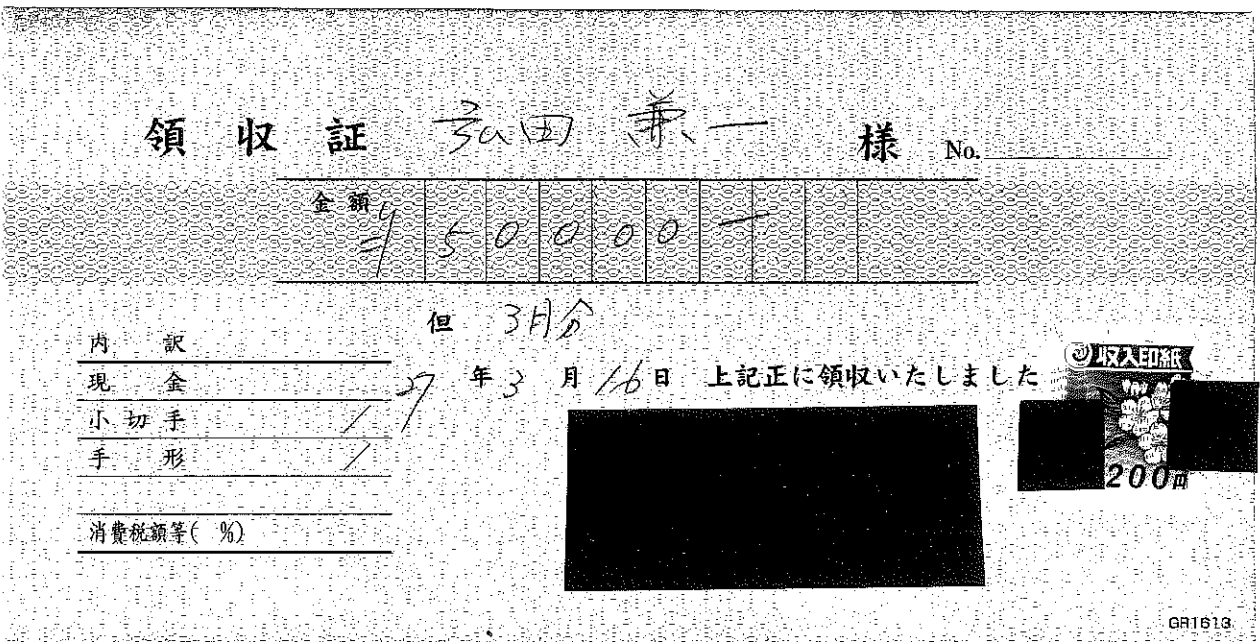 領収証 弘田 兼一 様 No.
金額 ¥50000-
但 3月分
内訳
現金
小切手
手形
消費税額等( %)
27年3月16日 上記正に領収いたしました
収入印紙
200円
GR1613